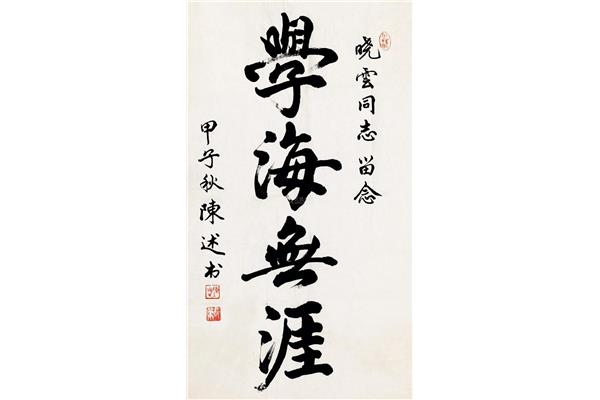 晓雲同志留念
學海無涯
甲子秋陳述书